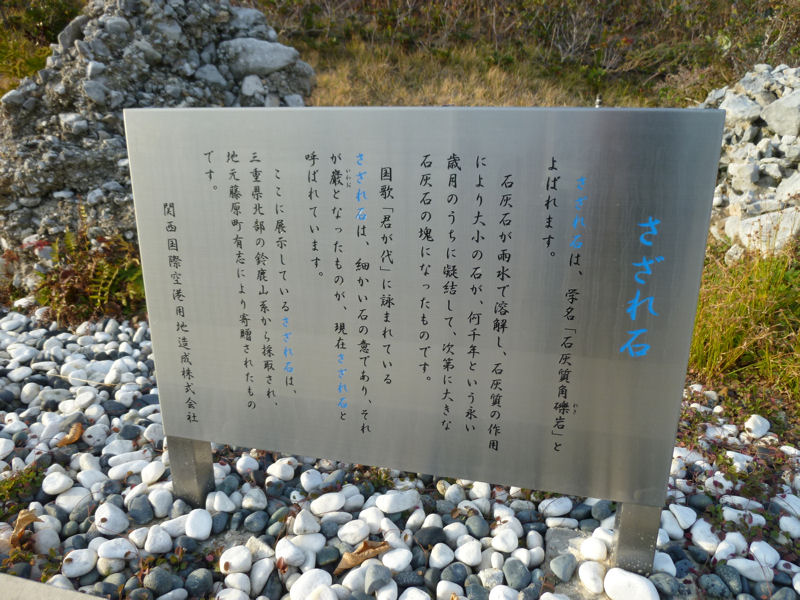 さざれ石
さざれ石は、学名「石灰質角礫岩」と
れき
よばれます。
石灰石が雨水で溶解し、石灰質の作用
により大小の石が、何千年という永い
歳月のうちに凝結して、次第に大きな
石灰石の塊になったものです。
国歌「君が代」に詠まれている
さざれ石は、細かい石の意であり、それ
が巌となったものが、現在さざれ石と
いわお
呼ばれています。
ここに展示しているさざれ石は、
三重県北部の鈴鹿山系から採取され、
地元藤原町有志により寄贈されたもの
です。
関西国際空港用地造成株式会社